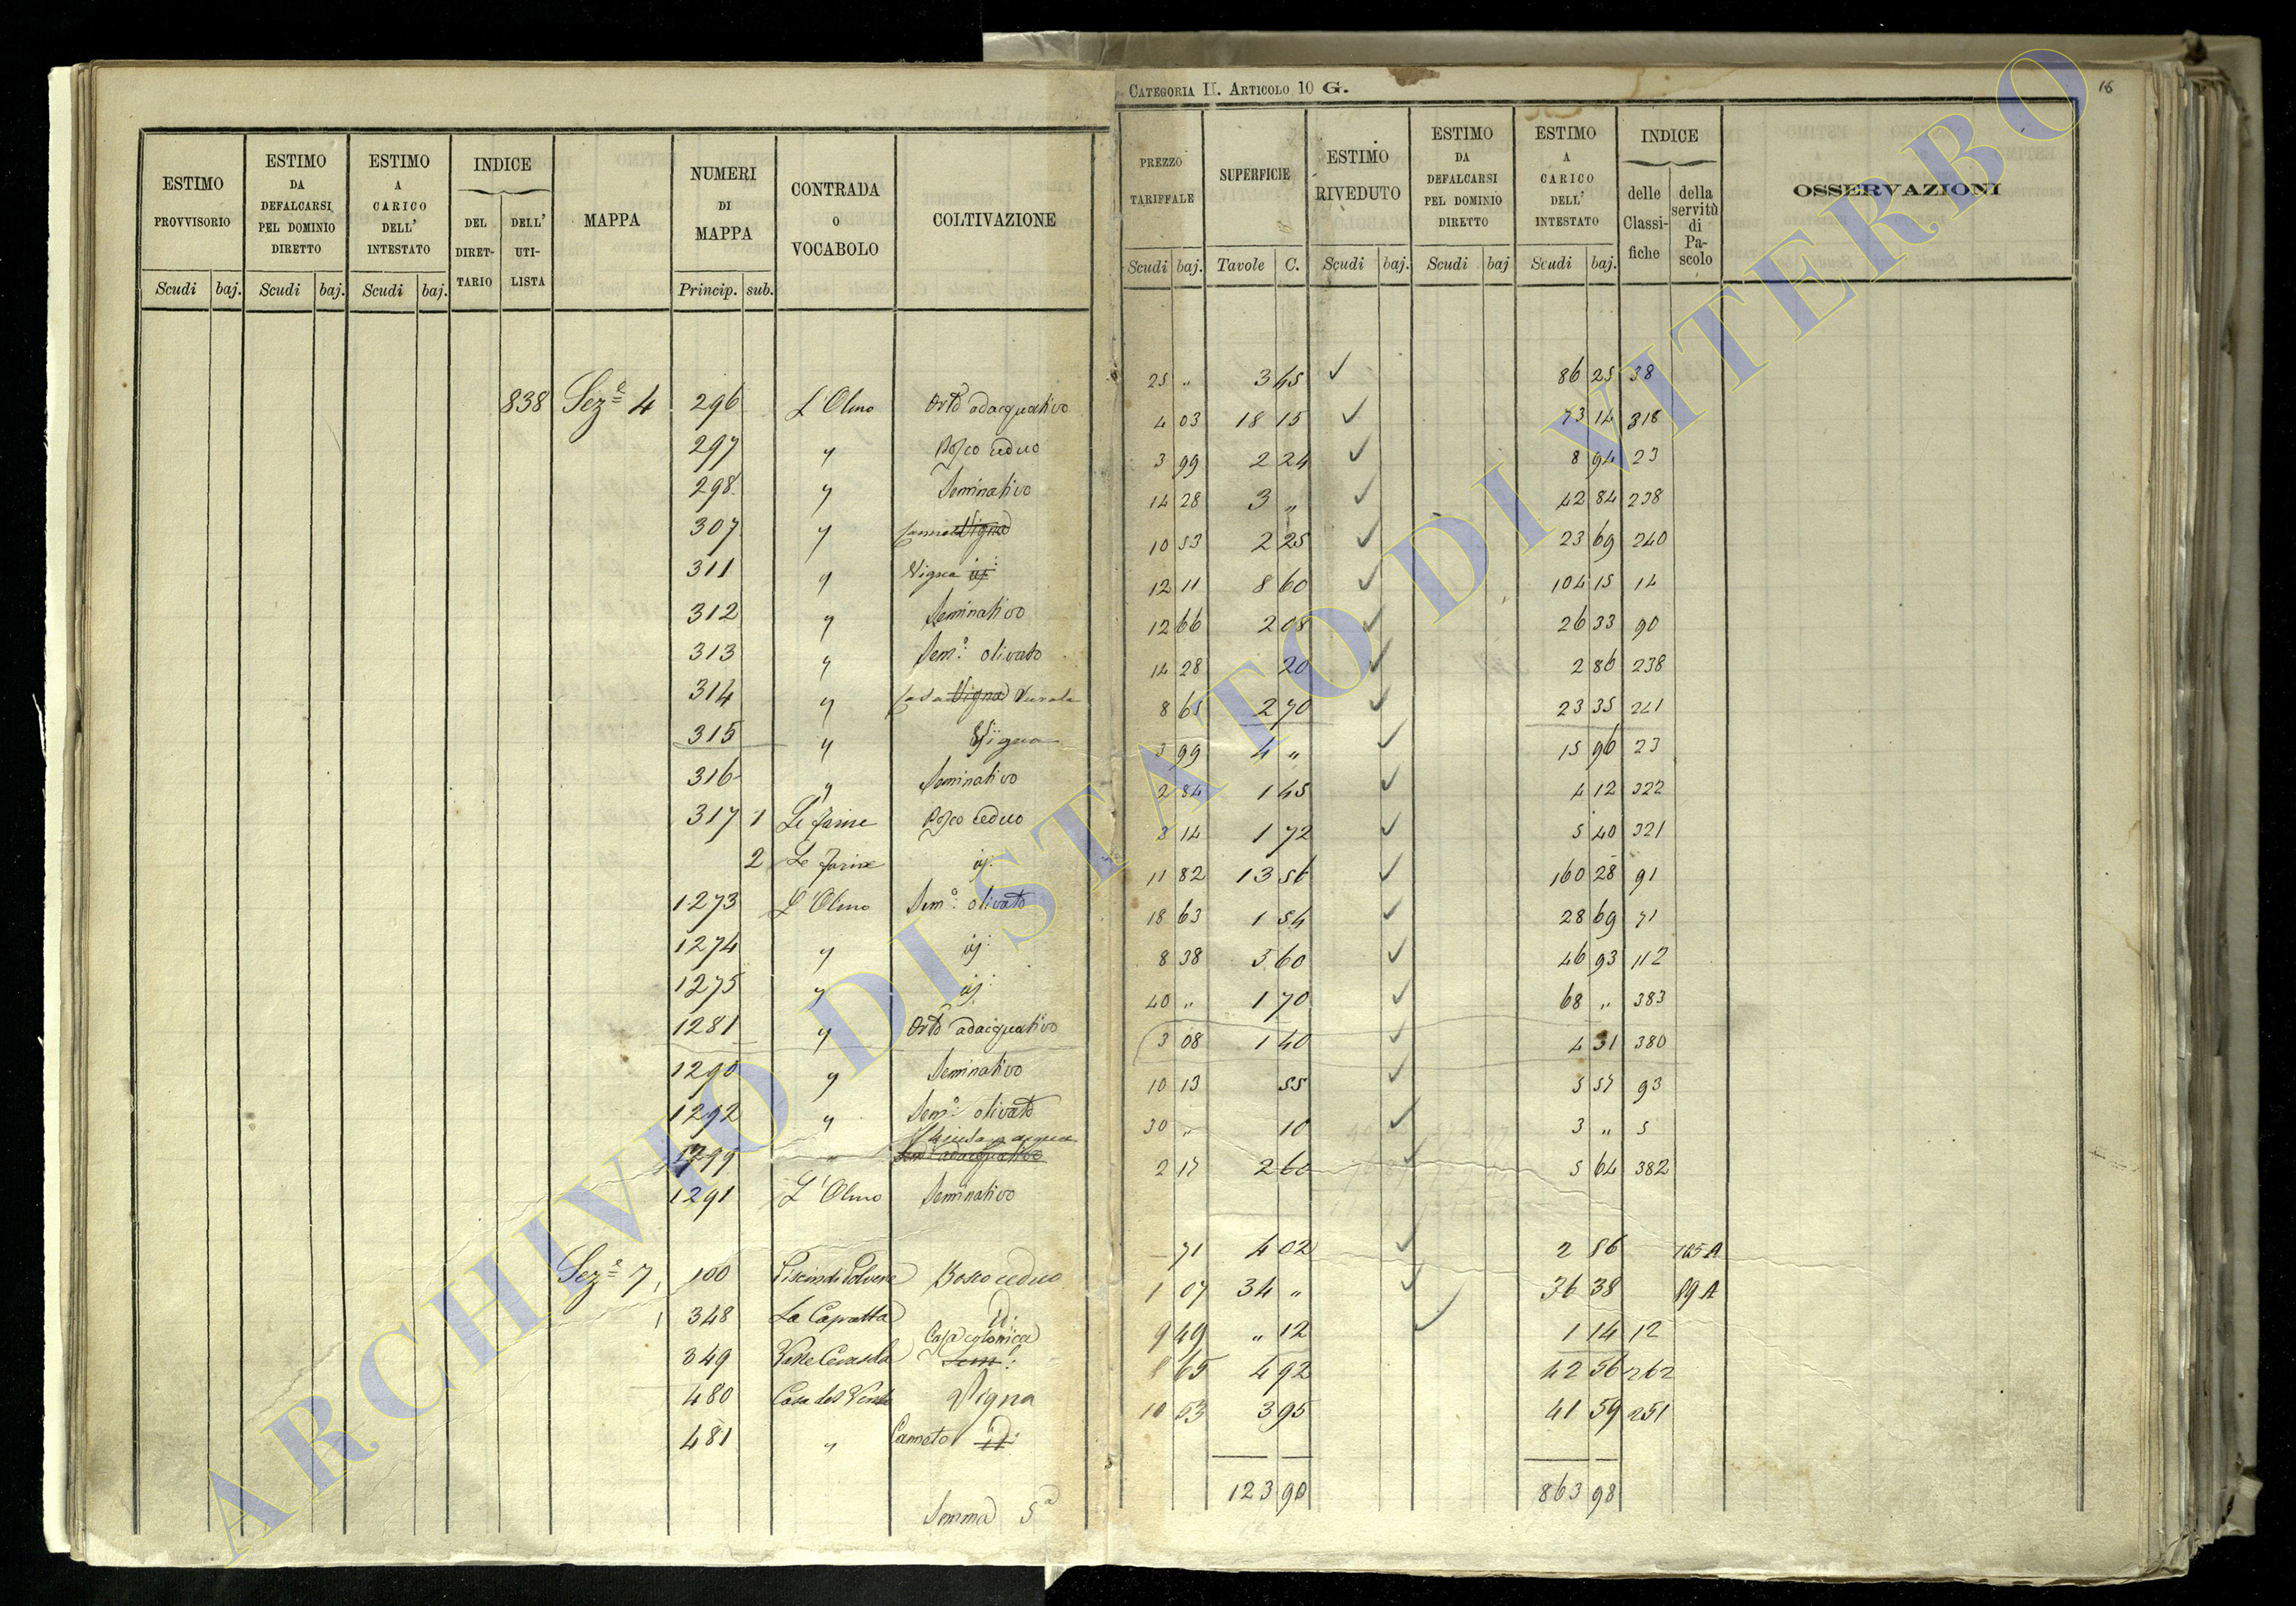 CATEGORIA II. ARTICOLO 10 G.
18
ESTIMO PROVVISORIO
ESTIMO DA DEFALCARSI PEL DOMINIO DIRETTO
ESTIMO A CARICO DELL' INTESTATO
INDICE
DEL DIRETTARIO
DELL' UTILISTA
MAPPA
NUMERI DI MAPPA
CONTRADA O VOCABOLO
COLTIVAZIONE
PREZZO TARIFFALE
SUPERFICIE
ESTIMO RIVEDUTO
ESTIMO DA DEFALCARSI PEL DOMINIO DIRETTO
ESTIMO A CARICO DELL' INTESTATO
INDICE
delle Classifiche
della servitù di Pascolo
OSSERVAZIONI
Scudi baj. Scudi baj. Scudi baj. Princip. sub. Scudi baj. Tavole C. Scudi baj. Scudi baj Scudi baj.
838 Sez.e 4 296 L'Olmo Orto adacquativo 25 " 3 45 ✓ 86 25 38
297 " Bosco ceduo 4 03 18 15 ✓ 73 14 318
298 " Seminativo 3 99 2 24 ✓ 8 94 23
307 " Canneto Vigna 14 28 3 " ✓ 42 84 238
311 " Vigna id: 10 53 2 25 ✓ 23 69 240
312 " Seminativo 12 11 8 60 ✓ 104 15 14
313 " Sem.o olivato 12 66 2 08 ✓ 26 33 90
314 " Casa Vigna rurale 14 28 20 ✓ 2 86 238
315 " Vigna 8 65 2 70 ✓ 23 35 241
316 " Seminativo 3 99 4 " ✓ 15 96 23
317 1 Le Farine Bosco ceduo 2 84 1 45 ✓ 4 12 322
2 Le Farine id: 3 14 1 72 ✓ 5 40 321
1273 L'Olmo Sem.o olivato 11 82 13 56 ✓ 160 28 91
1274 " id: 18 63 1 54 ✓ 28 69 71
1275 " id: 8 38 5 60 ✓ 46 93 112
1281 " Orto adacquativo 40 " 1 70 ✓ 68 " 383
1290 " Seminativo 3 08 1 40 ✓ 4 31 380
1292 " Sem.o olivato 10 13 55 ✓ 5 57 93
1299 " adacquativo 30 " 10 ✓ 3 " 5
1291 L'Olmo Seminativo 2 17 2 60 ✓ 5 64 382
Sez.e 7 100 Bosco ceduo 71 4 02 ✓ 2 86 125 A
348 La Capratta id: 1 07 34 " ✓ 36 38 89 A
349 Casa colonica Sem.o 9 49 " 12 ✓ 1 14 12
480 Casa del Vigna 8 65 4 92 42 56 262
481 " Canneto id: 10 53 3 95 41 59 251
Somma S.a 123 90 863 98
ARCHIVIO DI STATO DI VITERBO